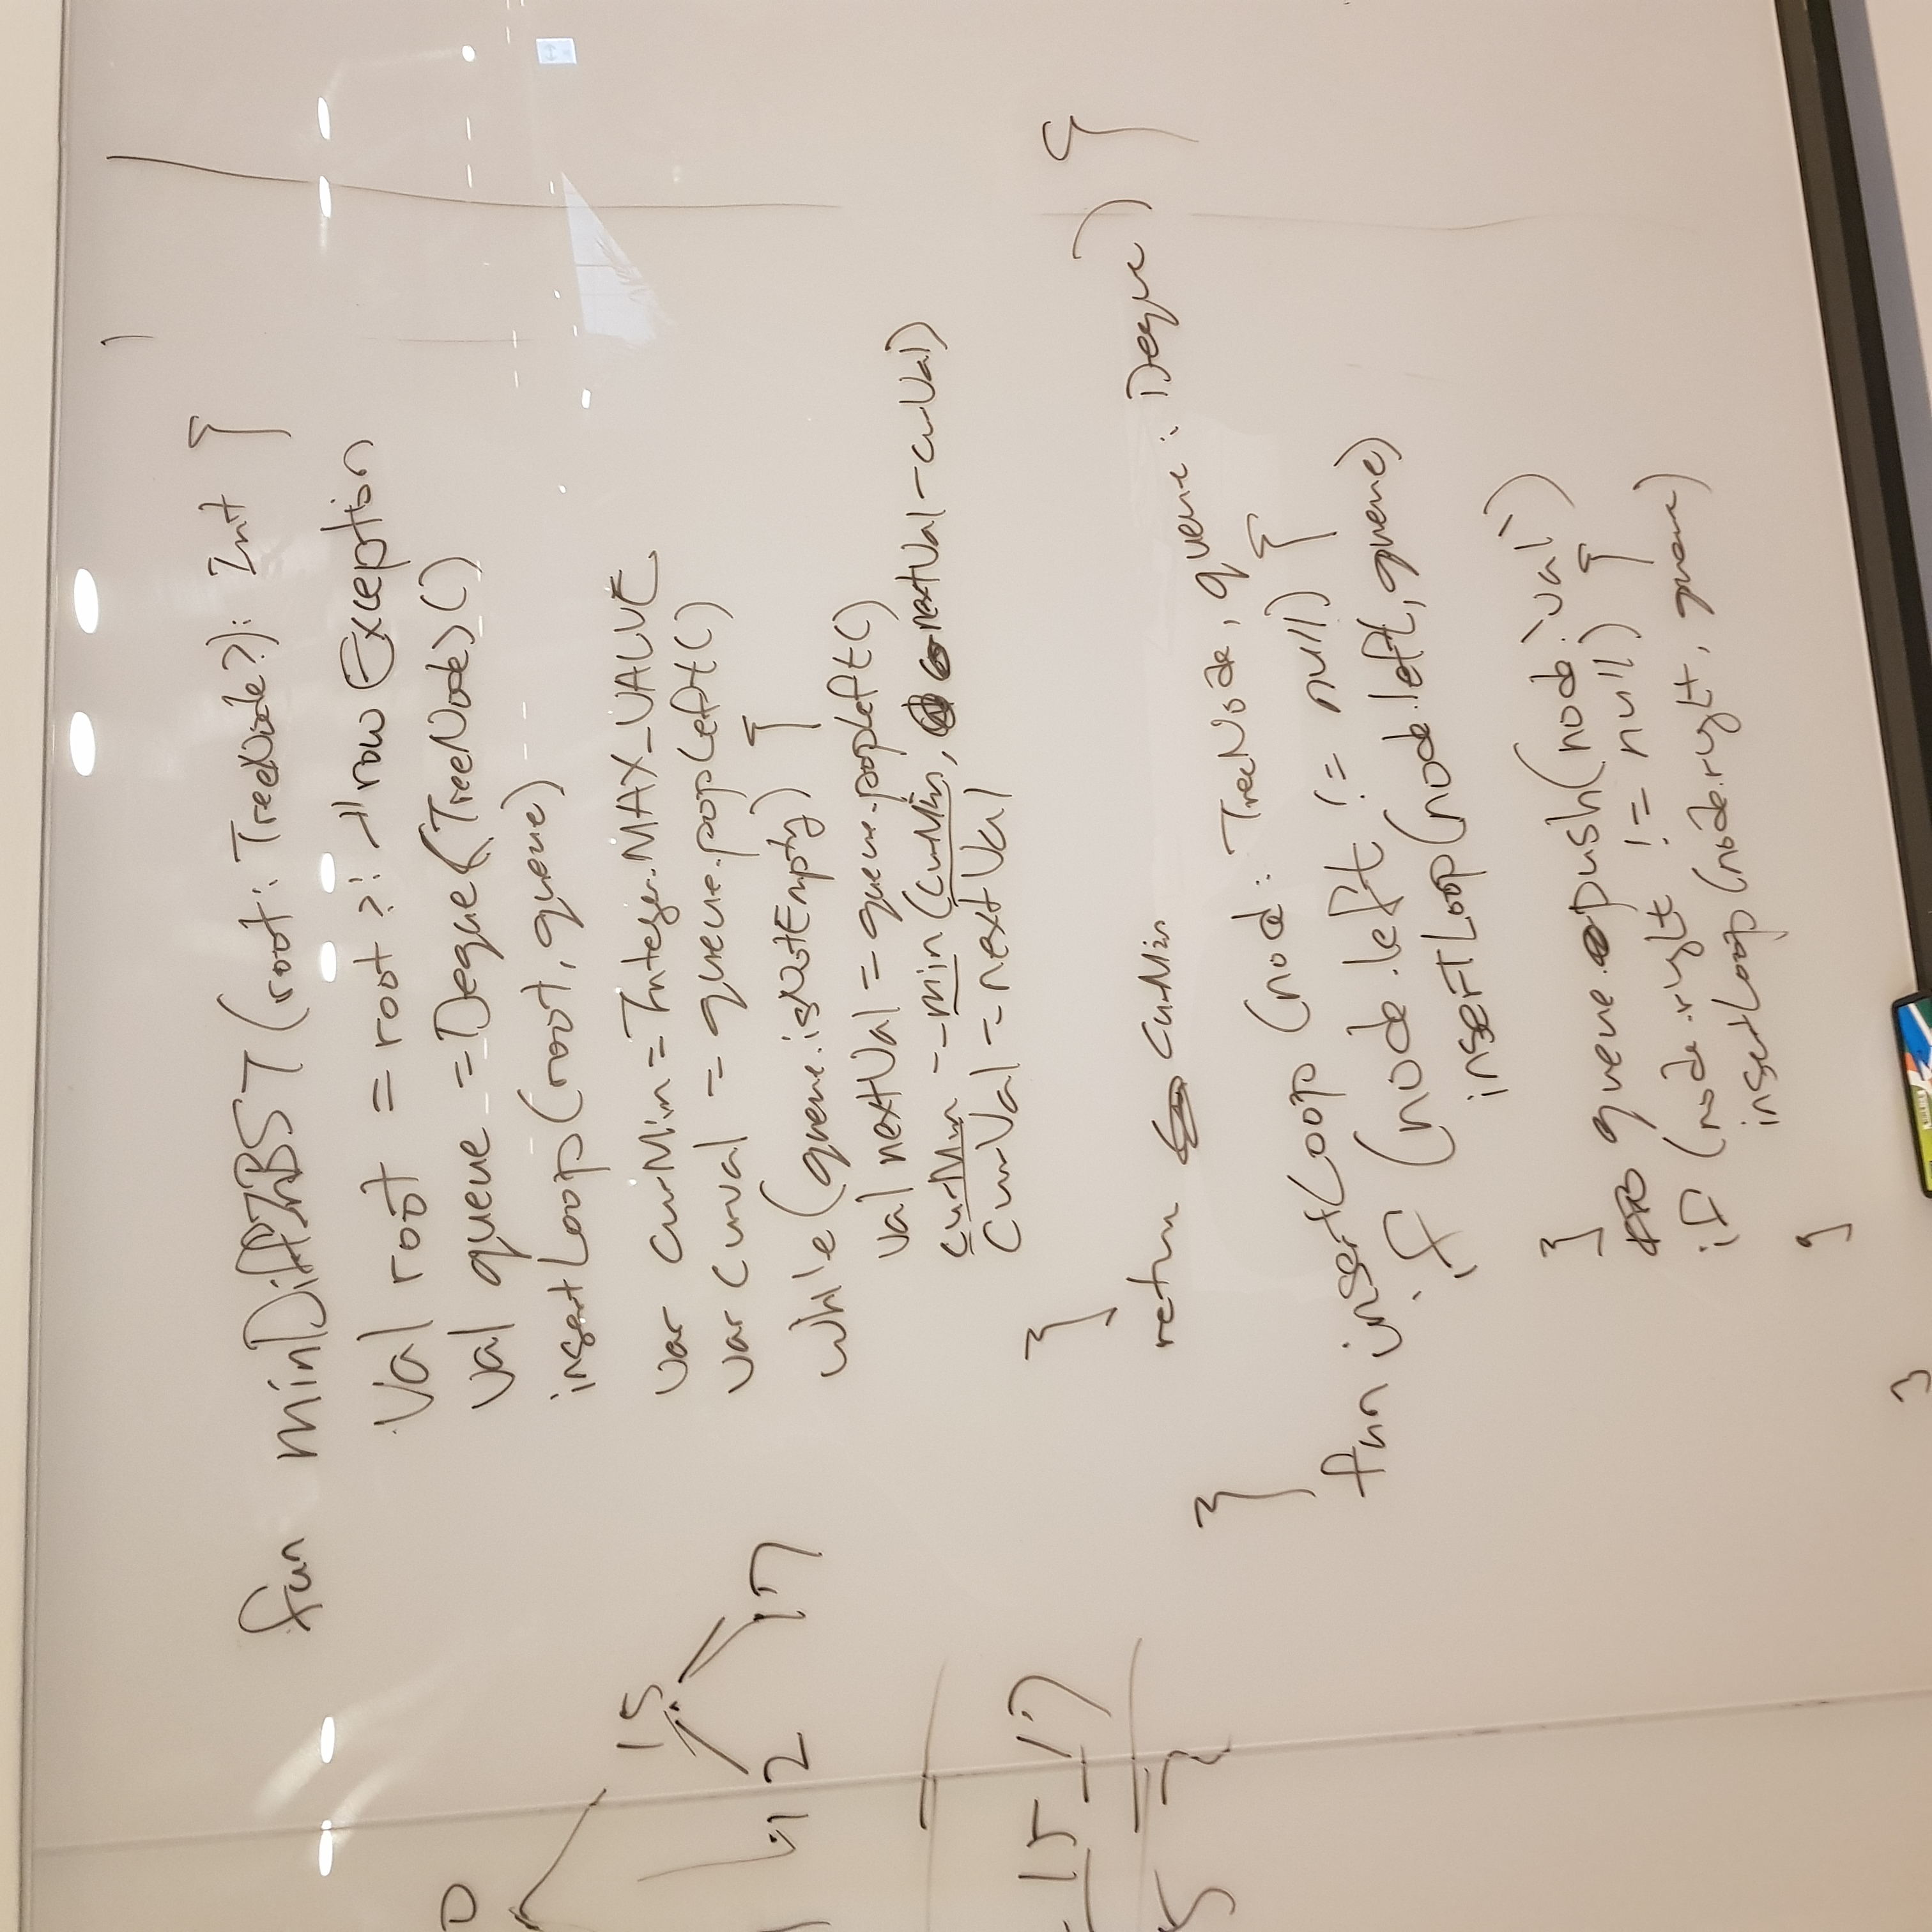 fun minDiffInBST (root: TreeNode?): Int {
val root = root ?: throw Exception
val queue = Deque<TreeNode>()
insertLoop(root, queue)
var curMin = Integer.MAX_VALUE
var curVal = queue.popLeft()
while (queue.isNotEmpty) {
val nextVal = queue.popLeft()
curMin = min(curMin, nextVal - curVal)
CurVal = nextVal
}
return curMin
}
fun insertLoop (node: TreeNode, queue: Deque) {
if (node.left != null) {
insertLoop(node.left, queue)
}
queue.push(node.`val`)
if (node.right != null) {
insertLoop(node.right, queue)
}
}
0
15
12 17
15 17
5 2